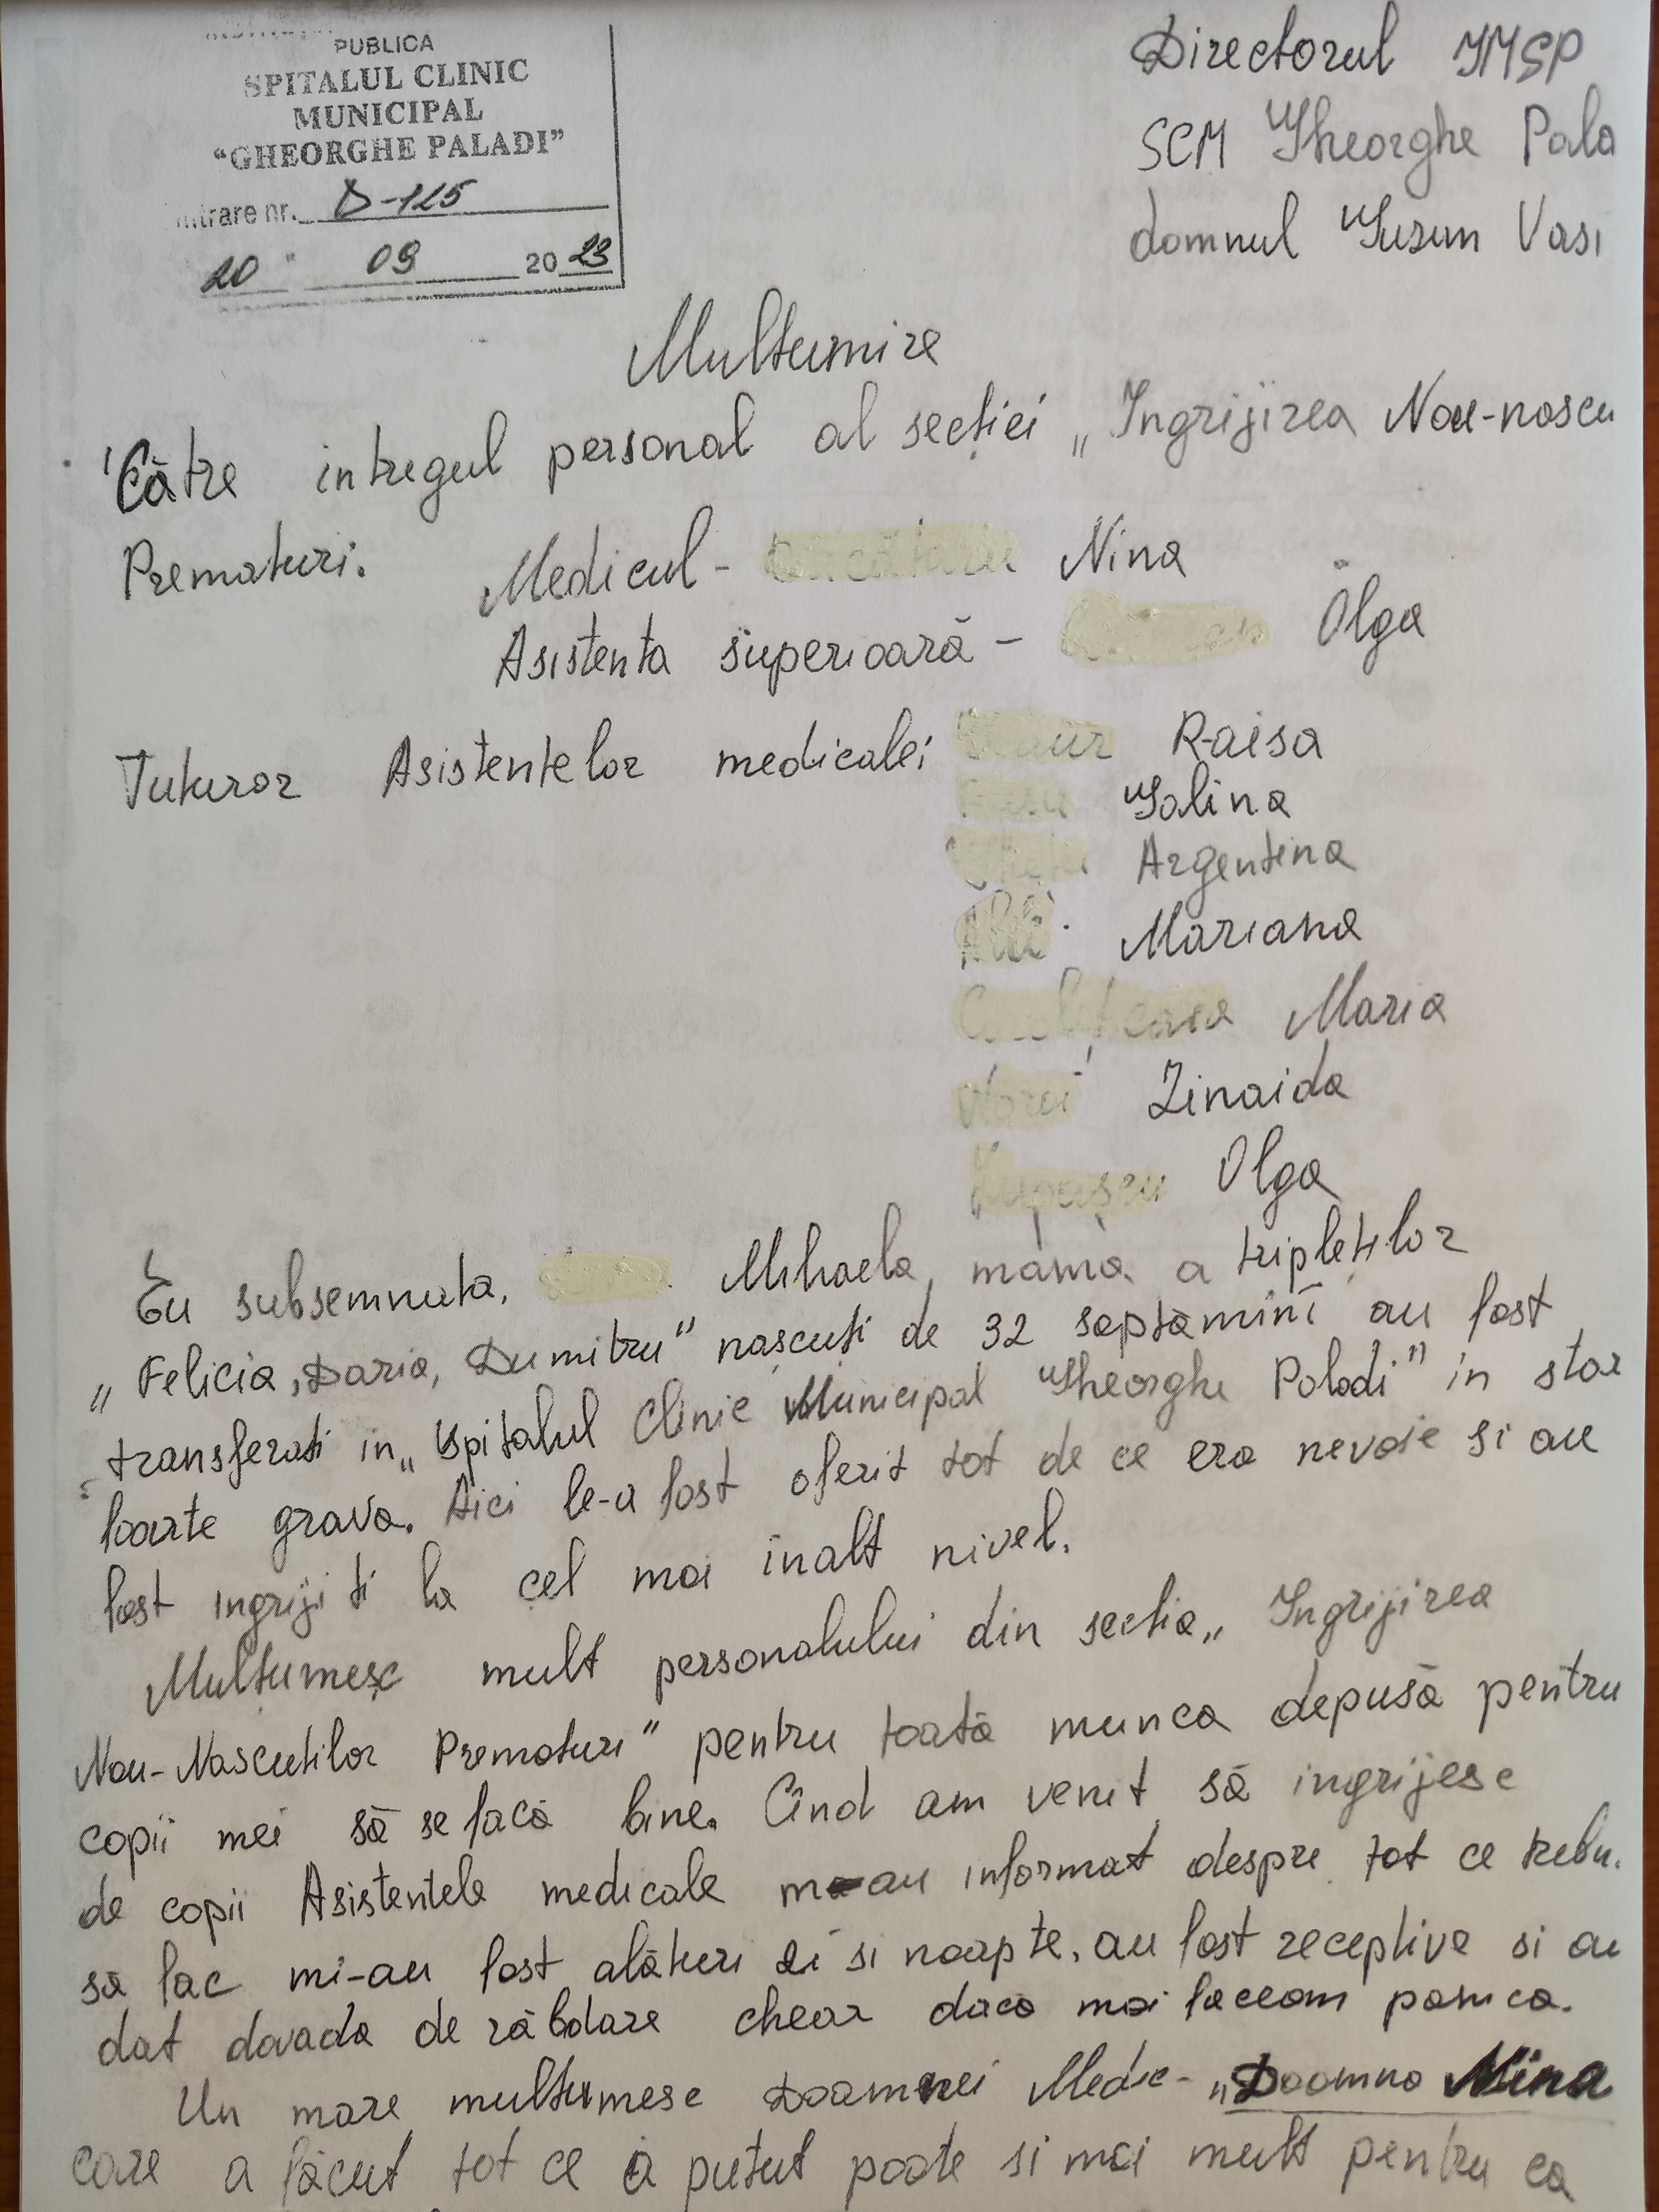 PUBLICA
SPITALUL CLINIC
MUNICIPAL
“GHEORGHE PALADI”
intrare nr. D-125
20 " 09 20 23
Directorul IMSP
SCM Gheorghe Pala
domnul Gusun Vasi
Multumire
Către intregul personal al secției „Ingrijirea Nou-nascu
Prematuri. Medicul - Nina
Asistenta superioară - Olga
Tuturor Asistentelor medicale; Raisa
Galina
Argentina
Mariana
Maria
Zinaida
Olga
Eu subsemnata, Mihaela, mama a tripleților
„Felicia, Daria, Dumitru" nascuti de 32 saptamini au fost
transferati in „Spitalul Clinic Municipal Gheorghe Paladi" in star
foarte grava. Aici le-a fost oferit tot de ce era nevoie si au
fost ingrijiti la cel mai inalt nivel.
Mulțumesc mult personalului din sectia „Ingrijirea
Nou-Nascutilor Prematuri" pentru toată munca depusă pentru
copii mei să se facă bine. Cind am venit să ingrijesc
de copii Asistentele medicale m-au informat despre tot ce trebu.
să fac mi-au fost alături zi si noapte, au fost receptive si au
dat dovada de răbdare chear daca mai faceam panica.
Un mare multumesc Doamnei Medic - „Doamna Nina
care a făcut tot ce a putut poate si mai mult pentru ca